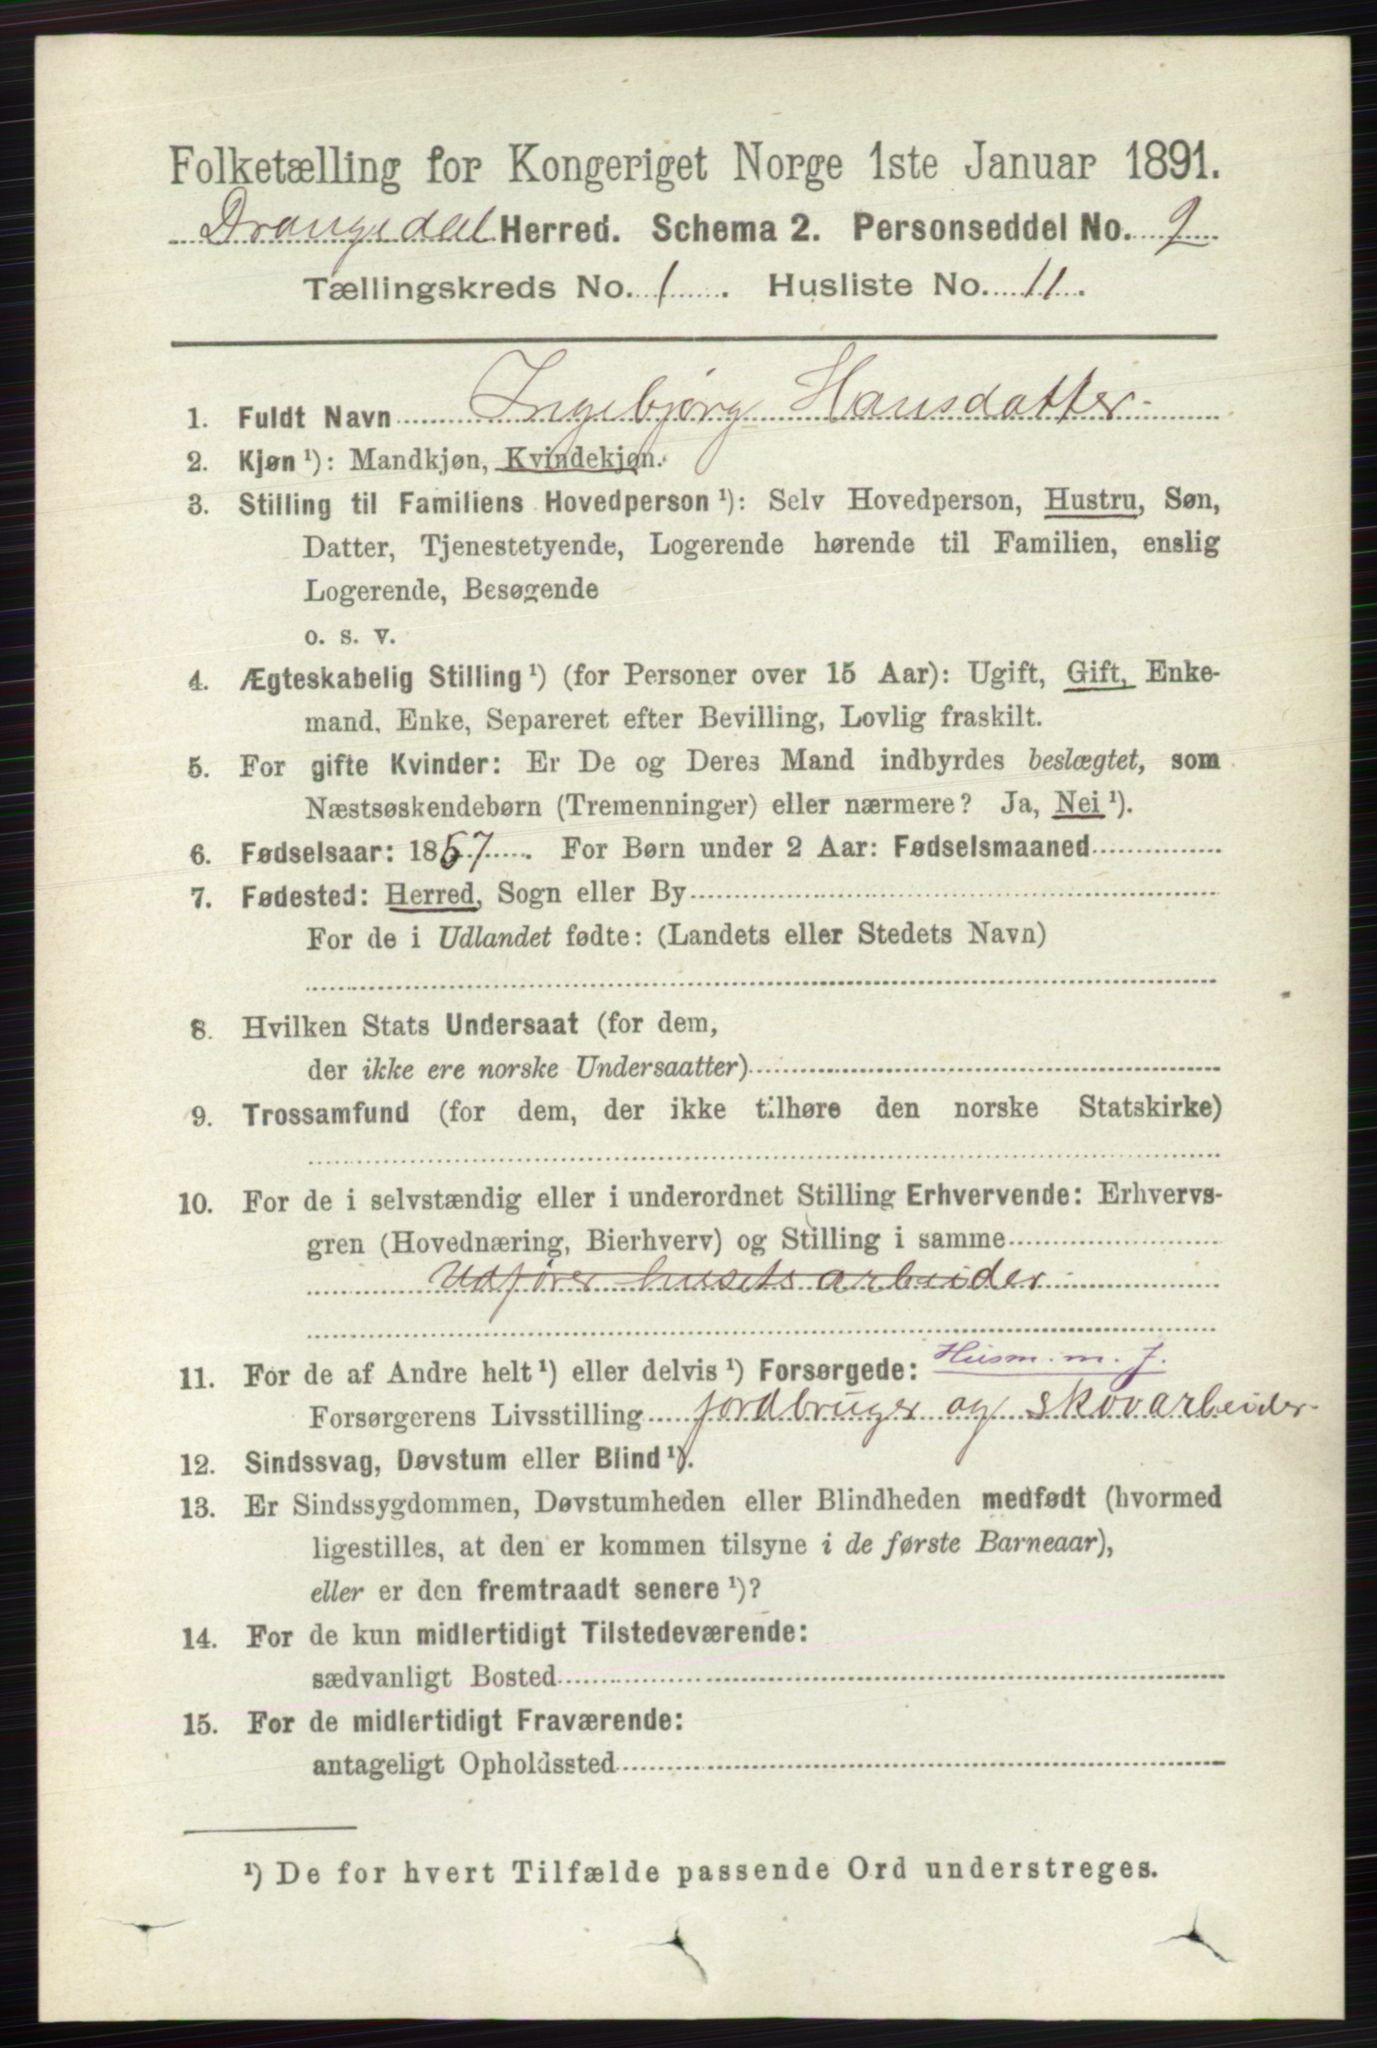 Folketælling for Kongeriget Norge 1ste Januar 1891.
Drangedal Herred. Schema 2. Personseddel No. 9
Tællingskreds No. 1. Husliste No. 11.
1. Fuldt Navn Ingebjørg Hansdatter
2. Kjøn ¹): Mandkjøn, Kvindekjøn.
3. Stilling til Familiens Hovedperson ¹): Selv Hovedperson, Hustru, Søn,
Datter, Tjenestetyende, Logerende hørende til Familien, enslig
Logerende, Besøgende
o. s. v.
4. Ægteskabelig Stilling ¹) (for Personer over 15 Aar): Ugift, Gift, Enke-
mand, Enke, Separeret efter Bevilling, Lovlig fraskilt.
5. For gifte Kvinder: Er De og Deres Mand indbyrdes beslægtet, som
Næstsøskendebørn (Tremenninger) eller nærmere? Ja, Nei ¹).
6. Fødselsaar: 1867. For Børn under 2 Aar: Fødselsmaaned
7. Fødested: Herred, Sogn eller By
For de i Udlandet fødte: (Landets eller Stedets Navn)
8. Hvilken Stats Undersaat (for dem,
der ikke ere norske Undersaatter)
9. Trossamfund (for dem, der ikke tilhøre den norske Statskirke)
10. For de i selvstændig eller i underordnet Stilling Erhvervende: Erhvervs-
gren (Hovednæring, Bierhverv) og Stilling i samme
Udfører husets arbeider
11. For de af Andre helt ¹) eller delvis ¹) Forsørgede: Husm. m. J.
Forsørgerens Livsstilling jordbruger og skovarbeider
12. Sindssvag, Døvstum eller Blind ¹).
13. Er Sindssygdommen, Døvstumheden eller Blindheden medfødt (hvormed
ligestilles, at den er kommen tilsyne i de første Barneaar),
eller er den fremtraadt senere ¹)?
14. For de kun midlertidigt Tilstedeværende:
sædvanligt Bosted
15. For de midlertidigt Fraværende:
antageligt Opholdssted
¹) De for hvert Tilfælde passende Ord understreges.